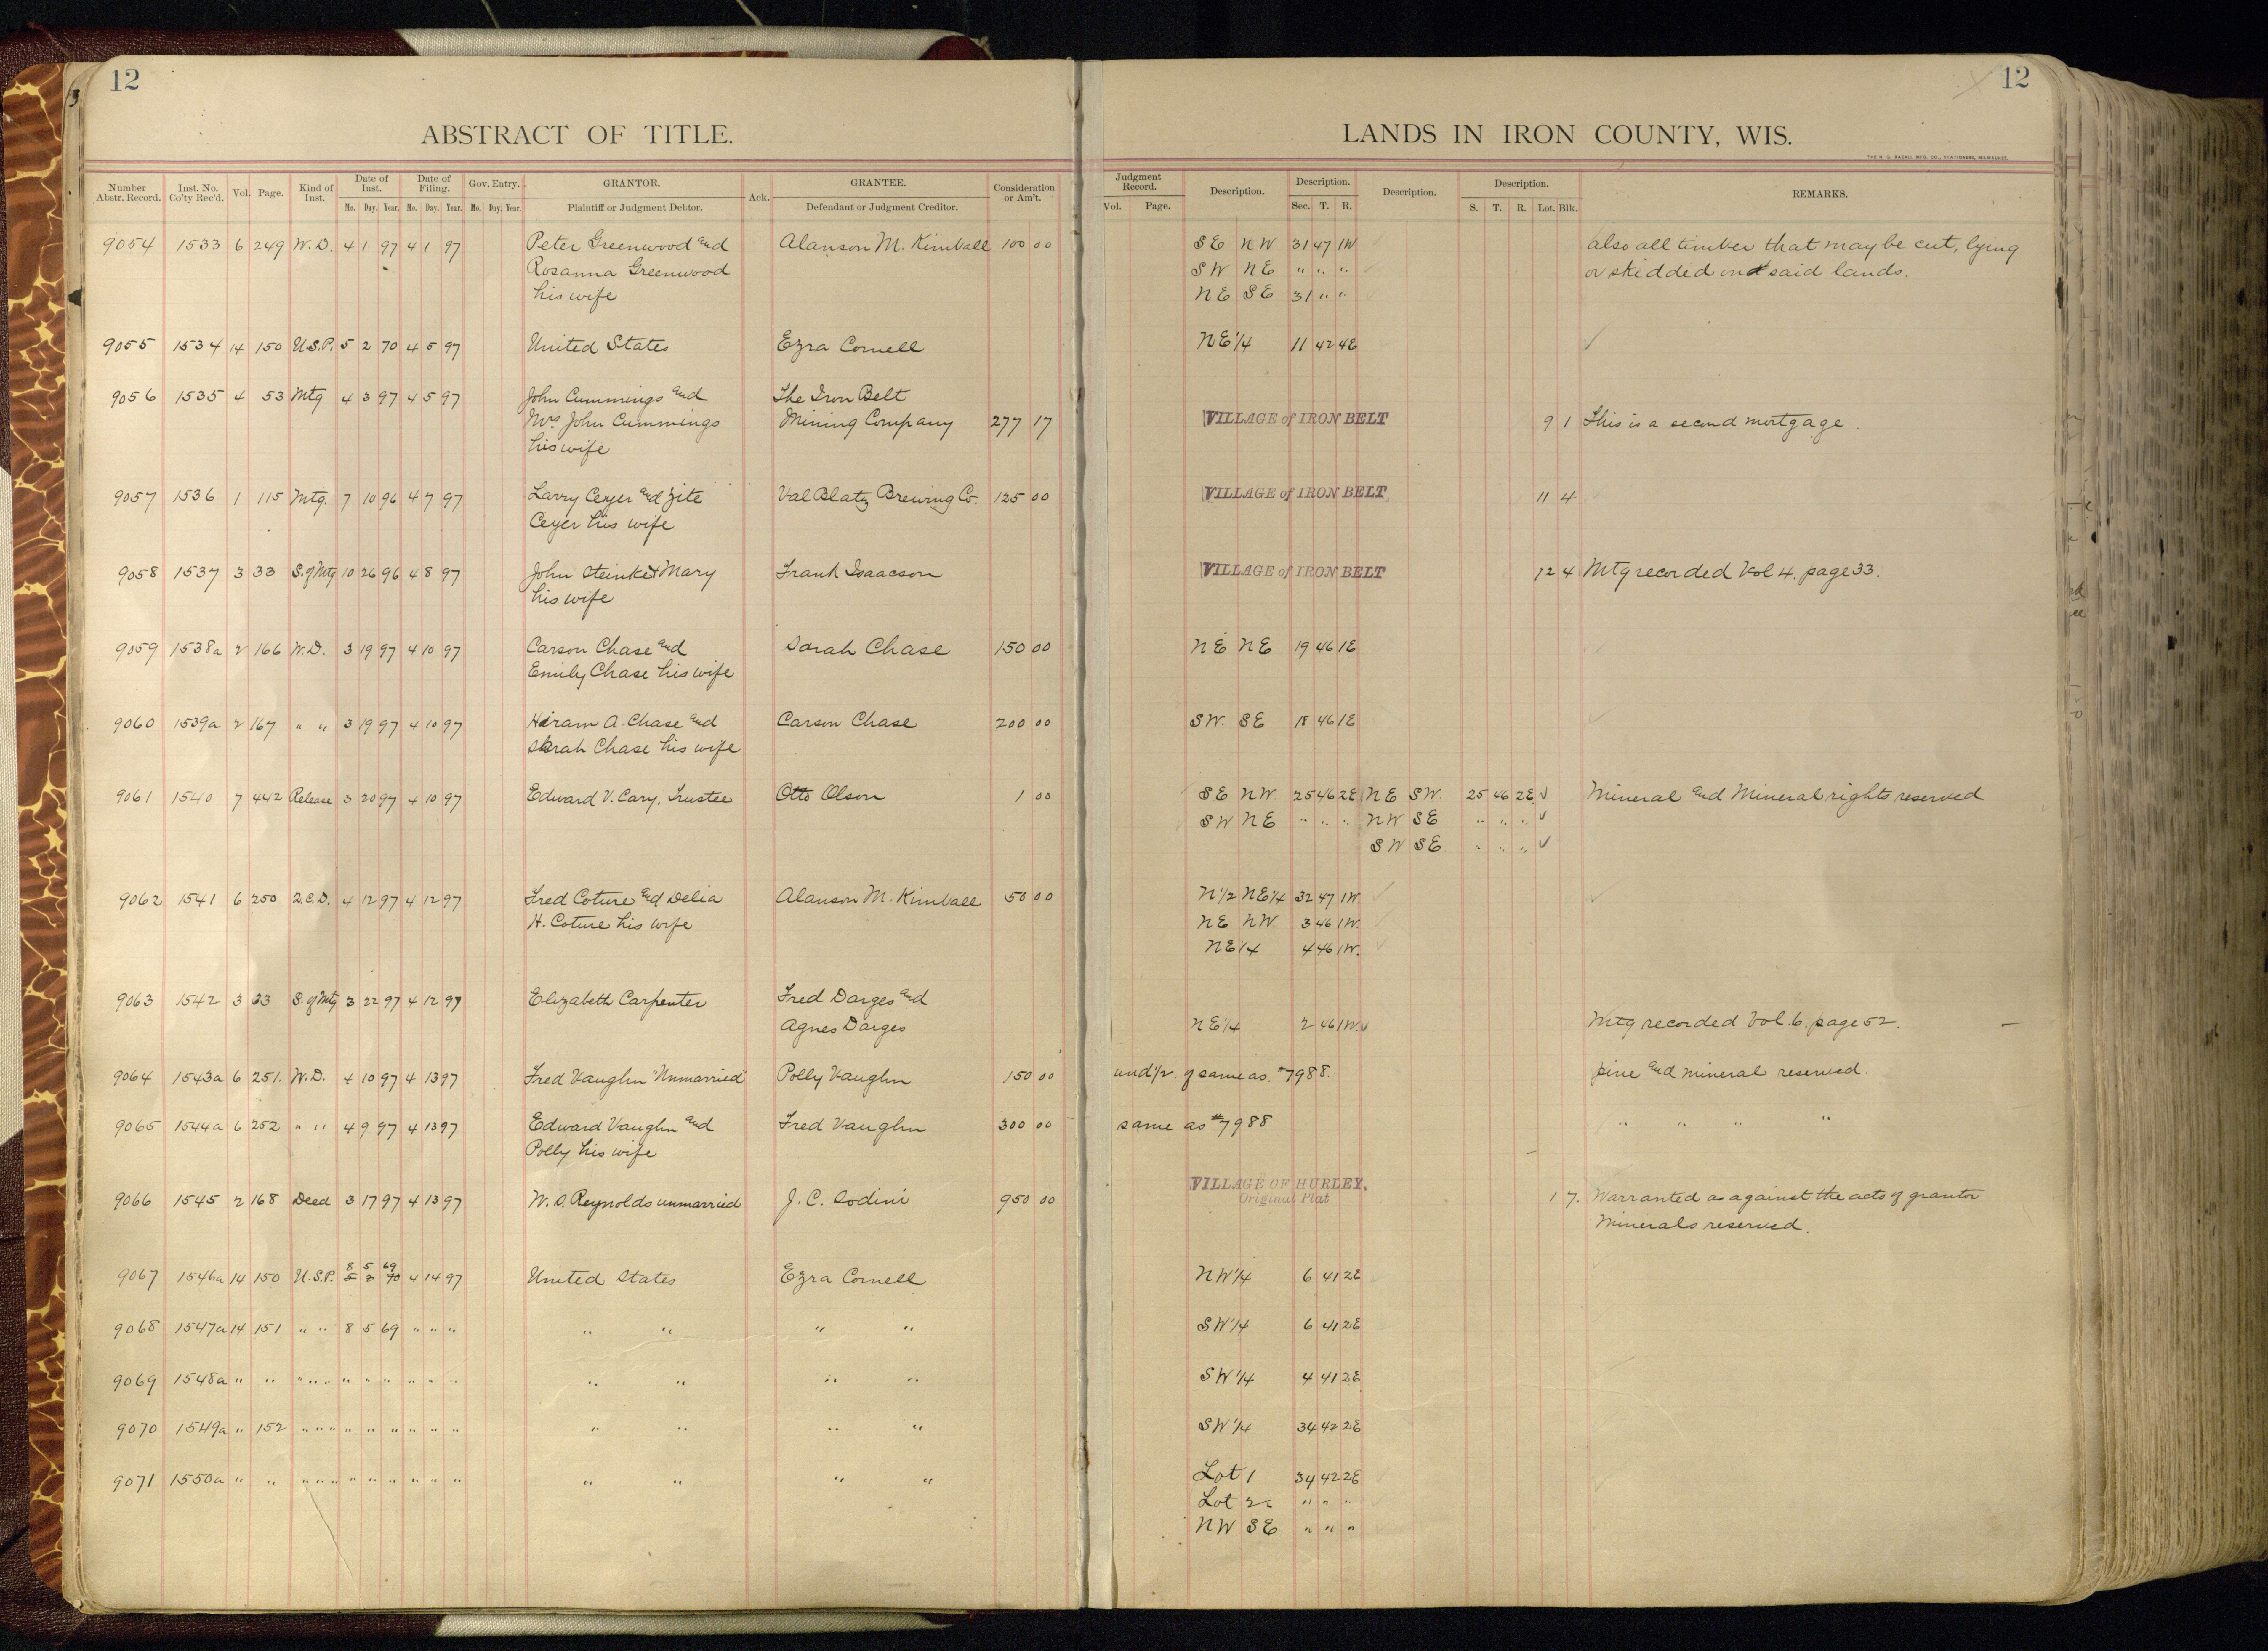 12
ABSTRACT OF TITLE.
Number Abstr. Record. Inst. No. Co'ty Rec'd. Vol. Page. Kind of Inst. Date of Inst. Date of Filing. Gov. Entry. GRANTOR. Ack. GRANTEE. Consideration or Am't.
Mo. Day. Year. Mo. Day. Year. Mo. Day. Year. Plaintiff or Judgment Debtor. Defendant or Judgment Creditor.
9054 1533 6 249 W.D. 4 1 97 4 1 97 Peter Greenwood and Alanson M. Kimball 100 00
Rosanna Greenwood
his wife
9055 1534 14 150 U.S.P. 5 2 70 4 5 97 United States Ezra Cornell
9056 1535 4 53 Mtg 4 3 97 4 5 97 John Cummings and The Iron Belt
Mrs John Cummings Mining Company 277 17
his wife
9057 1536 1 115 Mtg. 7 10 96 4 7 97 Larry Ceyer and Zite Val Blatz Brewing Co. 125 00
Ceyer his wife
9058 1537 3 33 S. of Mtg 10 26 96 4 8 97 John Steinke & Mary Frank Isaacson
his wife
9059 1538a 2 166 W.D. 3 19 97 4 10 97 Carson Chase and Sarah Chase 150 00
Emily Chase his wife
9060 1539a 2 167 " " 3 19 97 4 10 97 Hiram A. Chase and Carson Chase 200 00
Sarah Chase his wife
9061 1540 7 442 Release 3 20 97 4 10 97 Edward V. Cary, Trustee Otto Olson 1 00
9062 1541 6 250 Q.C.D. 4 12 97 4 12 97 Fred Coture and Delia Alanson M. Kimball 50 00
H. Coture his wife
9063 1542 3 33 S. of Mtg 3 22 97 4 12 97 Elizabeth Carpenter Fred Darges and
Agnes Darges
9064 1543a 6 251. W.D. 4 10 97 4 13 97 Fred Vaughn "Unmarried" Polly Vaughn 150 00
9065 1544a 6 252 " " 4 9 97 4 13 97 Edward Vaughn and Fred Vaughn 300 00
Polly his wife
9066 1545 2 168 Deed 3 17 97 4 13 97 W. S. Reynolds unmarried J. C. Sodini 950 00
8 5 69
9067 1546a 14 150 U.S.P. 5 2 70 4 14 97 United States Ezra Cornell
9068 1547a 14 151 " " 8 5 69 " " " " " " "
9069 1548a " " " " " " " " " " " " " " "
9070 1549a " 152 " " " " " " " " " " " " "
9071 1550a " " " " " " " " " " " " " " "
12
LANDS IN IRON COUNTY, WIS.
THE H. G. RAZALL MFG. CO., STATIONERS, MILWAUKEE.
Judgment Record. Description. Description. Description. Description. REMARKS.
Vol. Page. Sec. T. R. S. T. R. Lot. Blk.
SE NW 31 47 1W also all timber that may be cut, lying
SW NE " " " or skidded on said lands.
NE SE 31 " "
NE 1/4 11 42 4E
VILLAGE of IRON BELT 9 1 This is a second mortgage.
VILLAGE of IRON BELT 11 4
VILLAGE of IRON BELT 12 4 Mtg recorded Vol 4. page 33.
NE NE 19 46 1E
SW. SE 18 46 1E
SE NW. 25 46 2E NE SW. 25 46 2E Mineral and Mineral rights reserved
SW NE " " " NW SE " " "
SW SE " " "
N 1/2 NE 1/4 32 47 1W.
NE NW. 3 46 1W.
NE 1/4 4 46 1W.
NE 1/4 2 46 1W. Mtg recorded Vol. 6. page 52.
und 1/2. of same as. #7988. pine and mineral reserved.
same as #7988 " " " "
VILLAGE OF HURLEY.
Original Plat 1 7. Warranted as against the acts of grantor
Minerals reserved.
NW 1/4 6 41 2E
SW 1/4 6 41 2E
SW 1/4 4 41 2E
SW 1/4 34 42 2E
Lot 1 34 42 2E
Lot 2 " " "
NW SE " " "